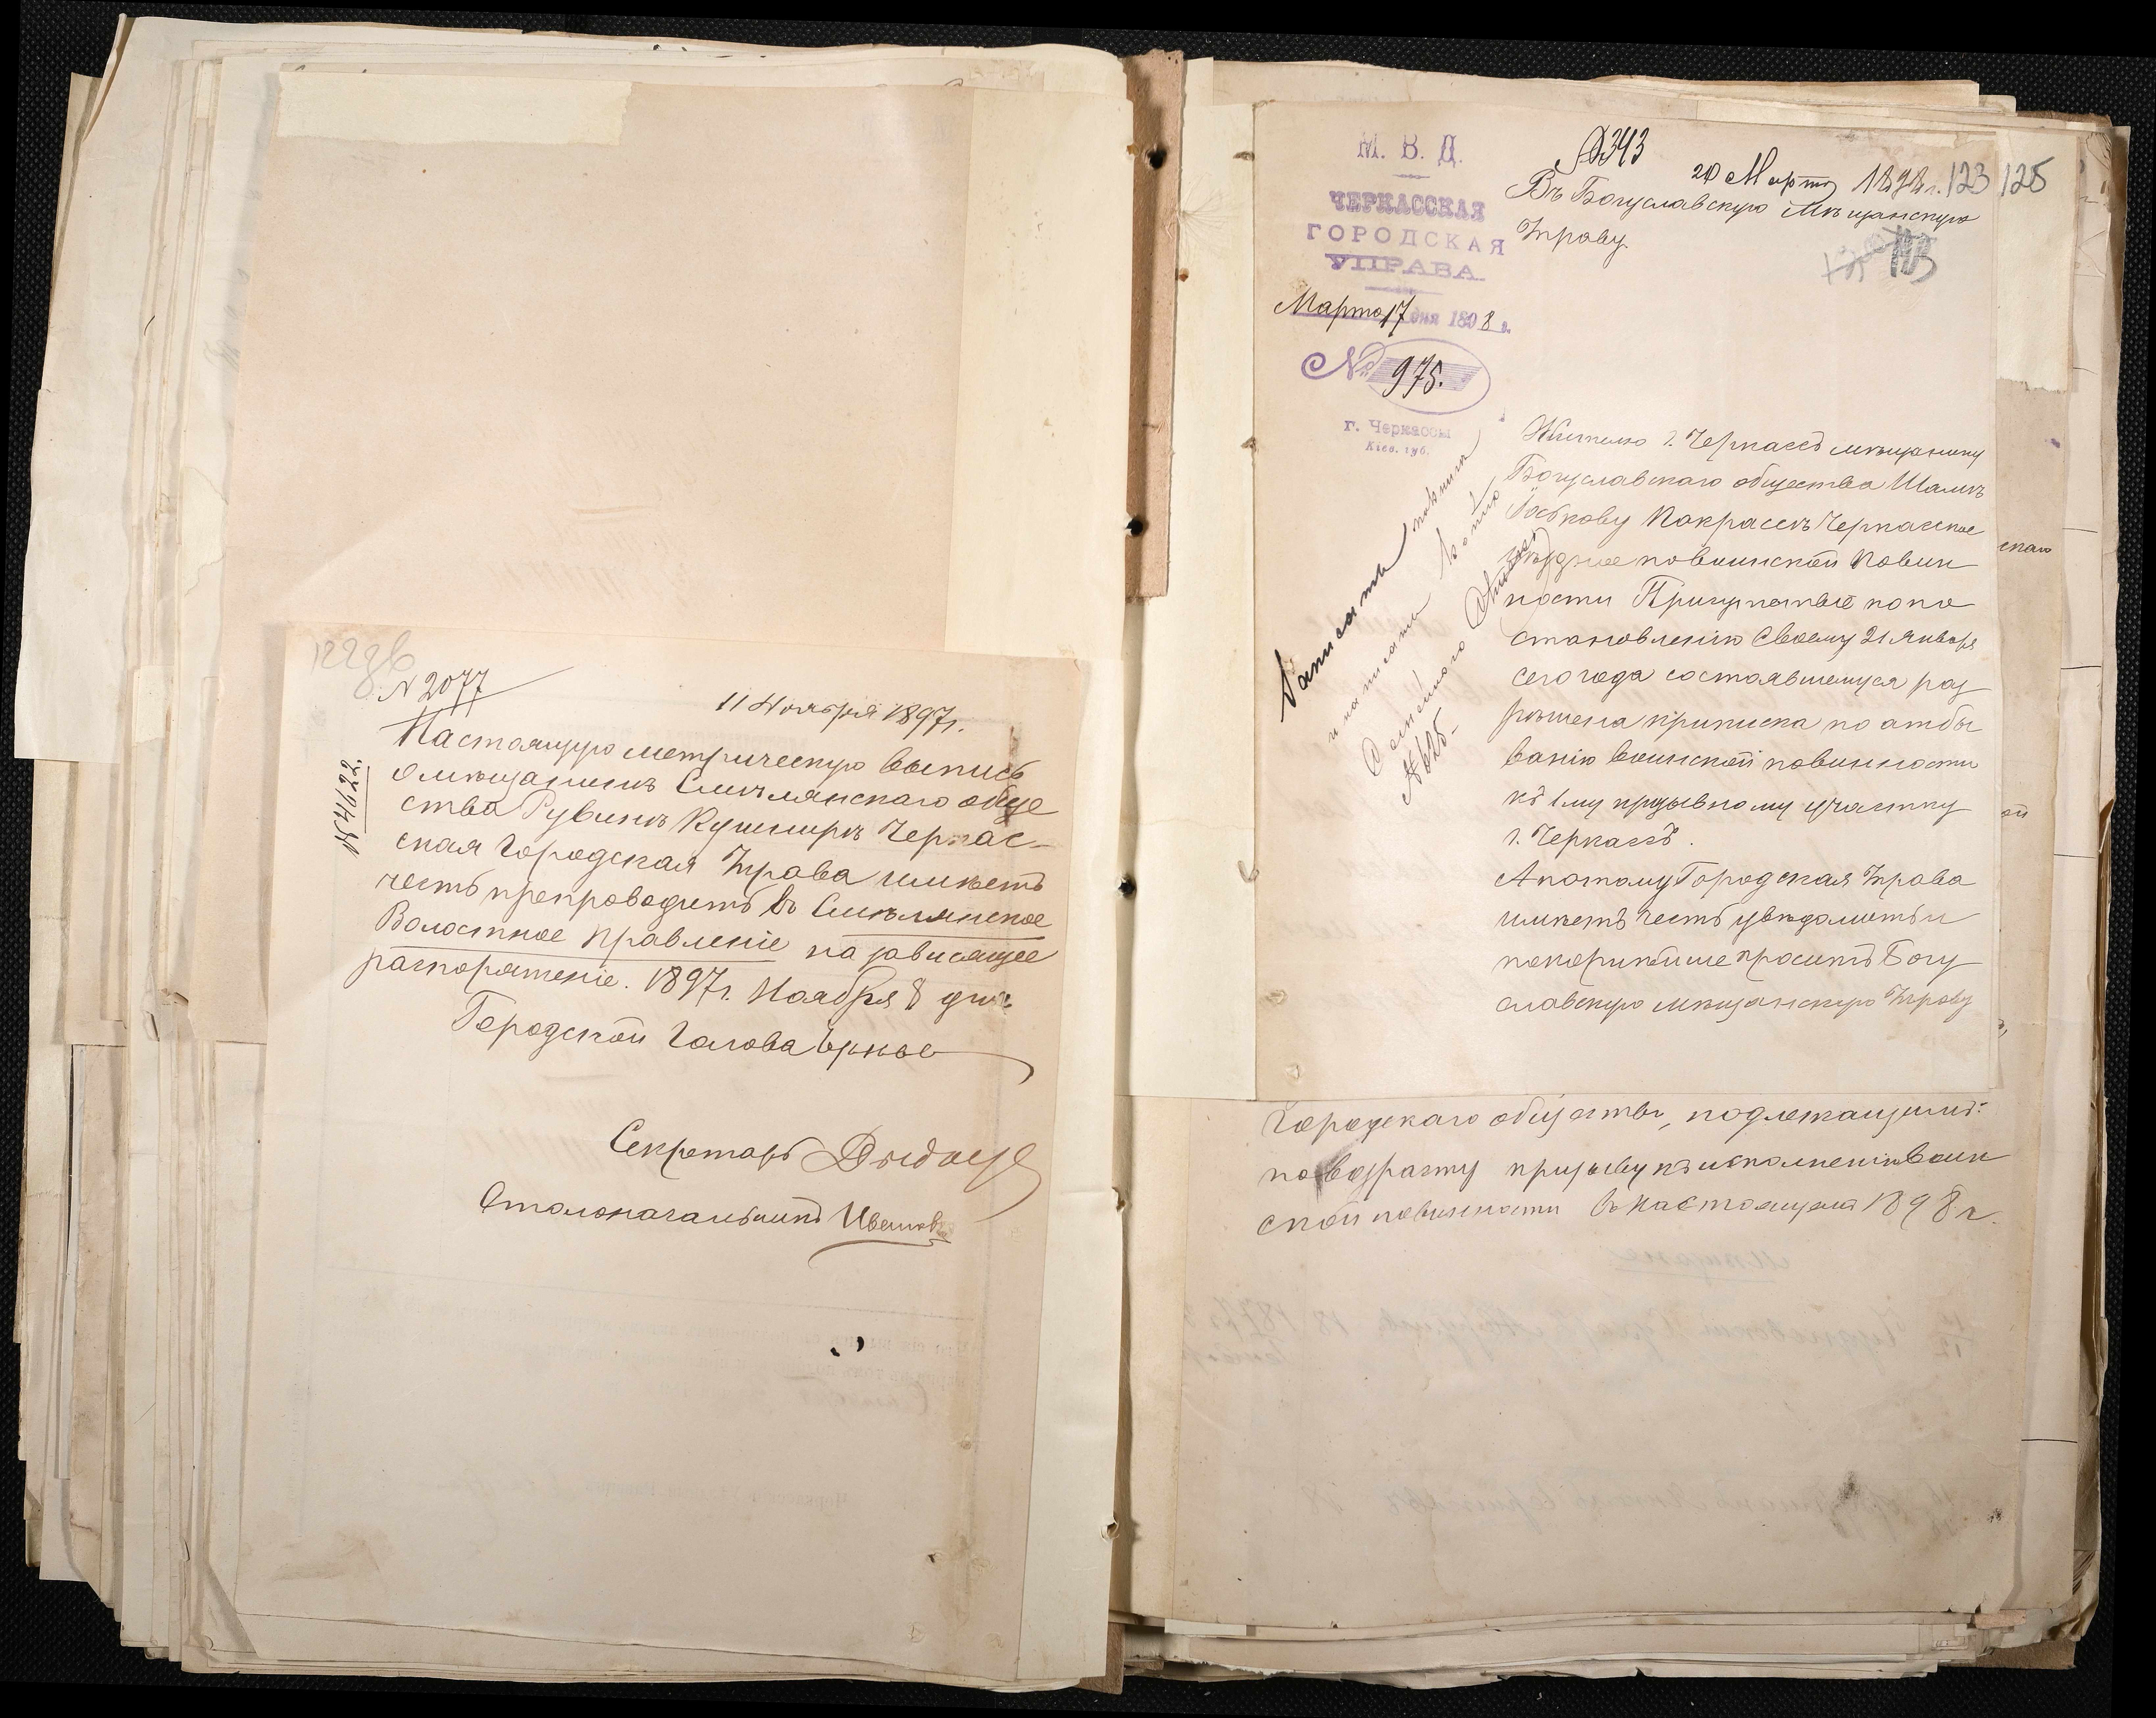 122 об
№ 2077
11 Ноября 1897г.
№ 4022
Настоящую метрическую выпись
о мѣщанинѣ Смѣлянскаго обще
ства Рувинѣ Кушнирѣ Черкас-
ская Городская Управа имѣетъ
честь препроводить въ Смѣлянское
Волостное Правленіе на зависящее
распоряженіе. 1897г. Ноября 8 дня.
Городской Голова
Секретарь
Столоначальникъ Цвѣтков
М. В. Д.
ЧЕРКАССКАЯ
ГОРОДСКАЯ
УПРАВА
Марта 17 дня 1898 г.
№ 975.
г. Черкассы
Кіев. губ.
№343
20 Марта 1898 г. 123 125
Въ Богуславскую Мѣщанскую
Управу.
Жителю г. Черкассъ мѣщанину
Богуславскаго общества Шамѣ
Іоськову Покрассѣ Черкасское
уѣздное по воинской Повин
ности Присутствіе по по
становленію Своему 21 Января
сего года состоявшемуся раз
рѣшена приписка по отбы
ванію воинской повинности
къ 1му призывному участку
г. Черкассъ.
А потому Городская Управа
имѣетъ честь увѣдомить и
покорнѣйше проситъ Богу
славскую мѣщанскую Управу
Городскаго общества, подлежащимъ
по возрасту призыву къ исполненію Воин
ской повинности въ настоящемъ 1898 г.
скаго
ой